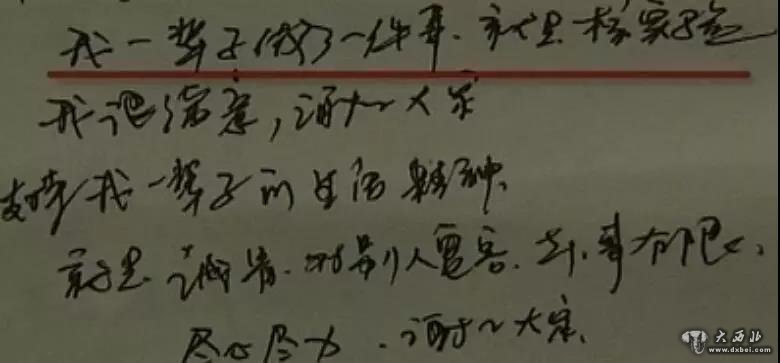 我一辈子做了一件事、就是核实验
我很满意，谢谢大家
支持我一辈子的生活精神、
就是诚实、对别人宽容、
尽心尽力、谢谢大家
大西北
www.dxbei.com